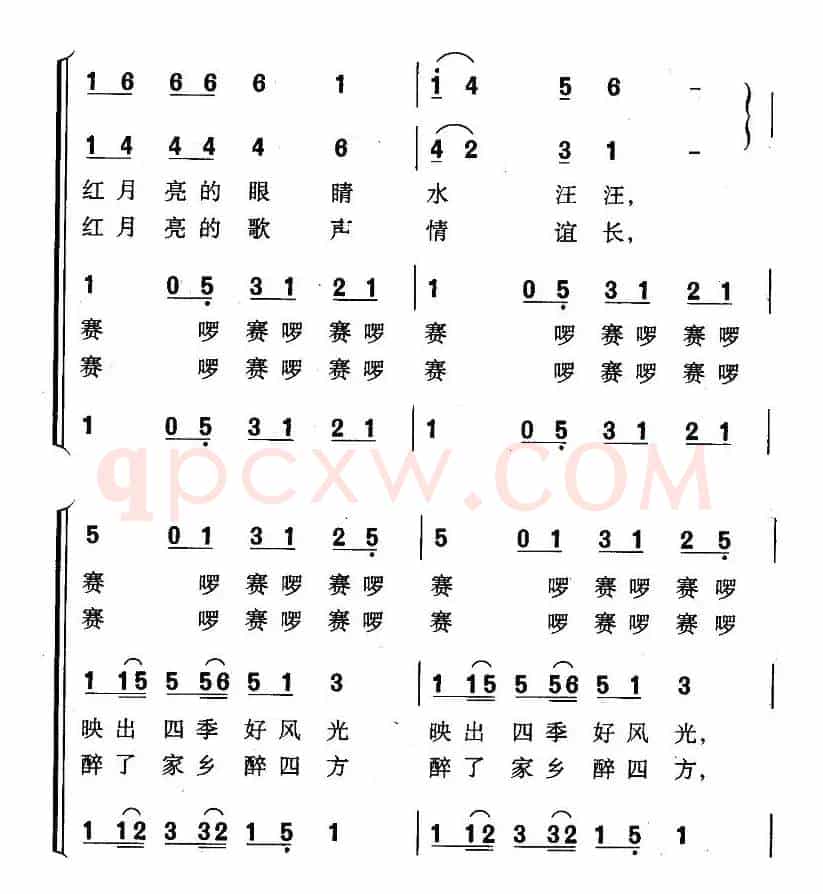 1 6 6 6 6 1 | 1 4 5 6 –
1 4 4 4 4 6 | 4 2 3 1 –
红月亮的眼睛水汪汪,
红月亮的歌声情谊长,
1 0 5 3 1 2 1 | 1 0 5 3 1 2 1 |
赛 啰赛啰赛啰赛 啰赛啰赛啰
赛 啰赛啰赛啰赛 啰赛啰赛啰
1 0 5 3 1 2 1 | 1 0 5 3 1 2 1 |
qpcxw.COM
5 0 1 3 1 2 5 | 5 0 1 3 1 2 5 |
赛 啰赛啰赛啰赛 啰赛啰赛啰
赛 啰赛啰赛啰赛 啰赛啰赛啰
1 15 5 56 5 1 3 | 1 15 5 56 5 1 3 |
映出四季好风光映出四季好风光,
醉了家乡醉四方醉了家乡醉四方,
1 12 3 32 1 5 1 | 1 12 3 32 1 5 1 |